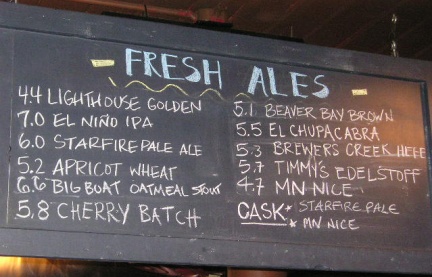 FRESH ALES
4.4 LIGHTHOUSE GOLDEN
7.0 EL NIÑO IPA
6.0 STARFIRE PALE ALE
5.2 APRICOT WHEAT
6.6 BIG BOAT OATMEAL STOUT
5.8 CHERRY BATCH
5.1 BEAVER BAY BROWN
5.5 EL CHUPACABRA
5.3 BREWERS CREEK HEFE
5.7 TIMMY'S EDELSTOFF
4.7 MN NICE
CASK* STARFIRE PALE
* MN NICE